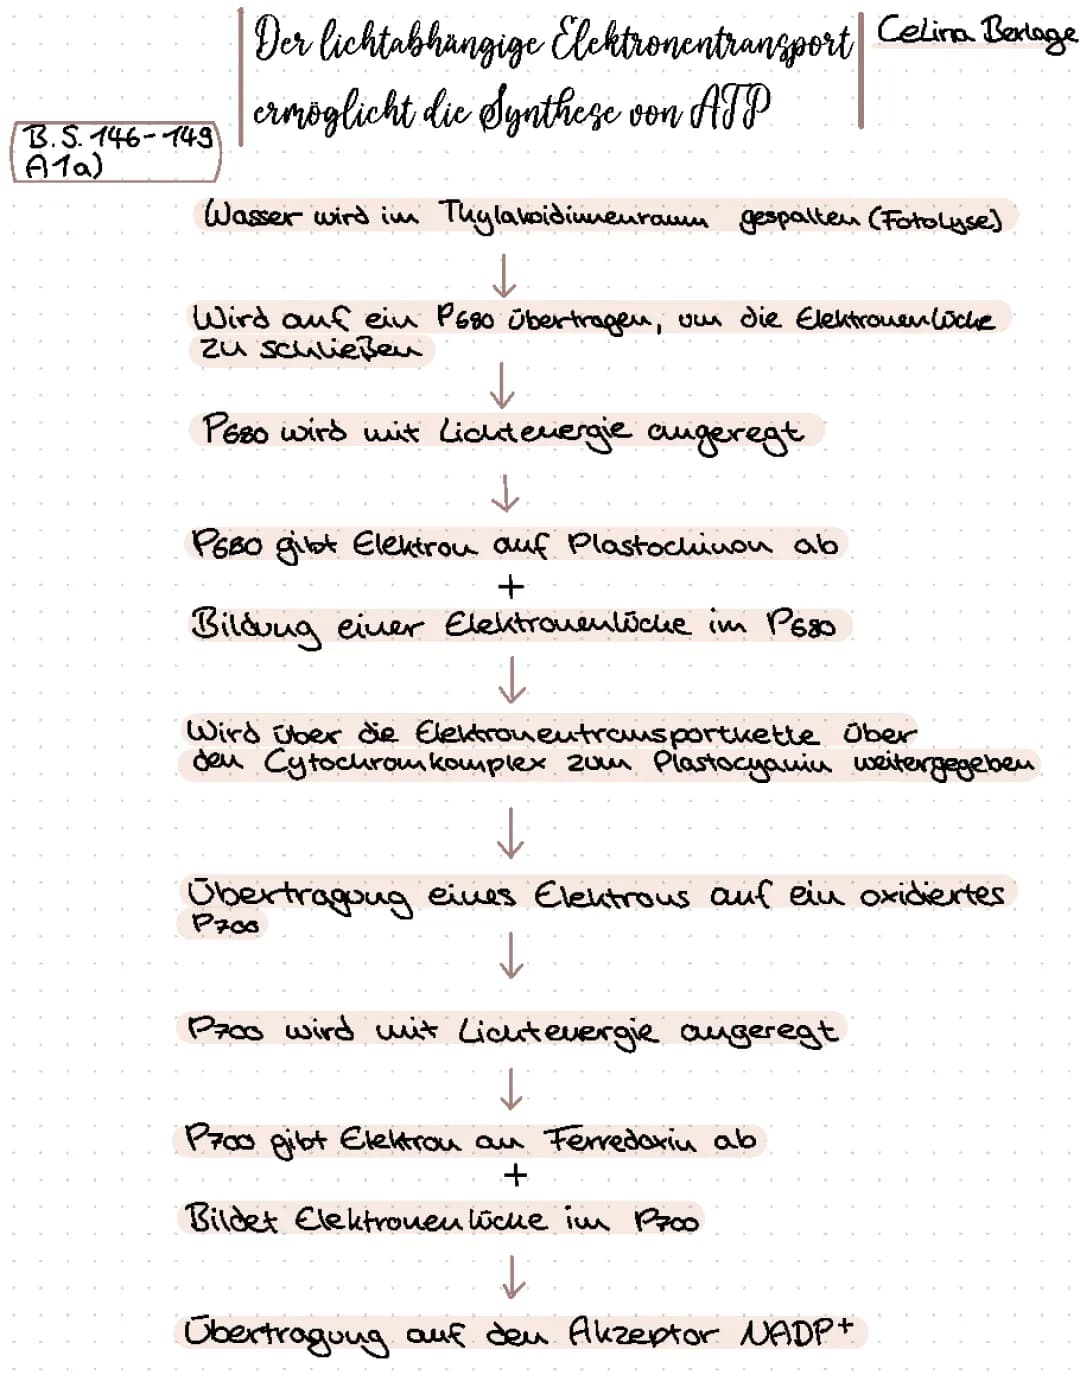 Der lichtabhängige Elektronentransport
ermöglicht die Synthese von ATP
Celina Berlage
B.S. 146-149
A1a)
Wasser wird im Thylakoidinnenraum gespalten (Fotolyse)
↓
Wird auf ein P680 übertragen, um die Elektronenlücke
zu schließen
↓
P680 wird mit Lichtenergie angeregt
↓
P680 gibt Elektron auf Plastochinon ab
+
Bildung einer Elektronenlücke im P680
↓
Wird über die Elektronentransportkette über
den Cytochromkomplex zum Plastocyanin weitergegeben
↓
Übertragung eines Elektrons auf ein oxidiertes
P700
↓
P700 wird mit Lichtenergie angeregt
↓
P700 gibt Elektron an Ferredoxin ab
+
Bildet Elektronenlücke im P700
↓
Übertragung auf den Akzeptor NADP+